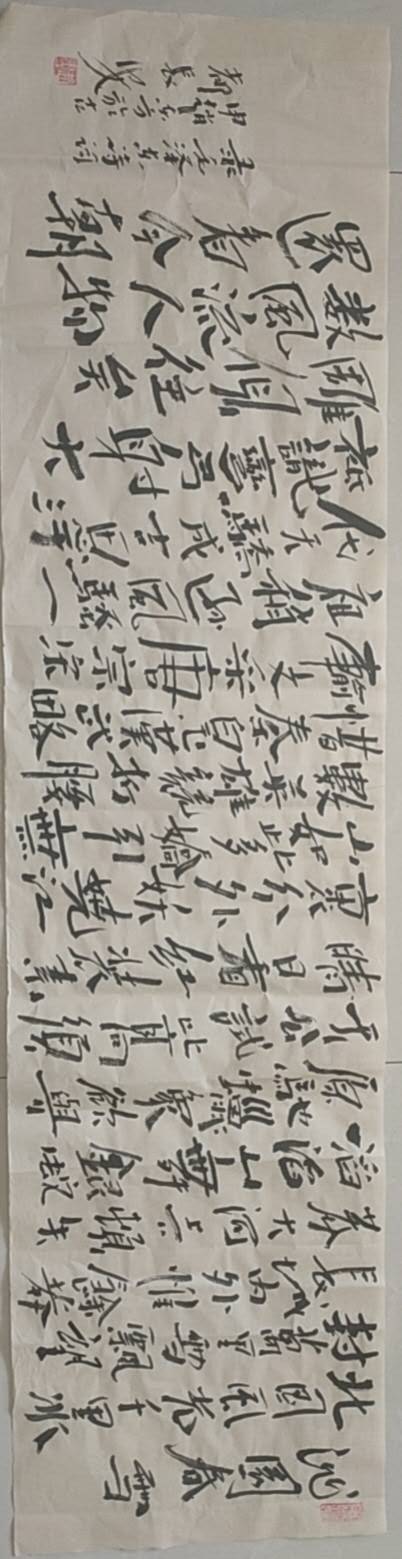 沁園春 雪
北國風光千里冰
封萬里雪飄望
長城内外惟餘莽
莽大河上下頓失
滔滔山舞銀蛇
原馳蠟象欲與
天公試比高須
晴日看紅裝素
裹分外妖嬈江
山如此多嬌引無
數英雄競折腰
惜秦皇漢武略
輸文采唐宗宋
祖稍遜風騷一
代天驕成吉思汗
祇識彎弓射大
雕俱往矣
數風流人物
還看今朝
毛泽东